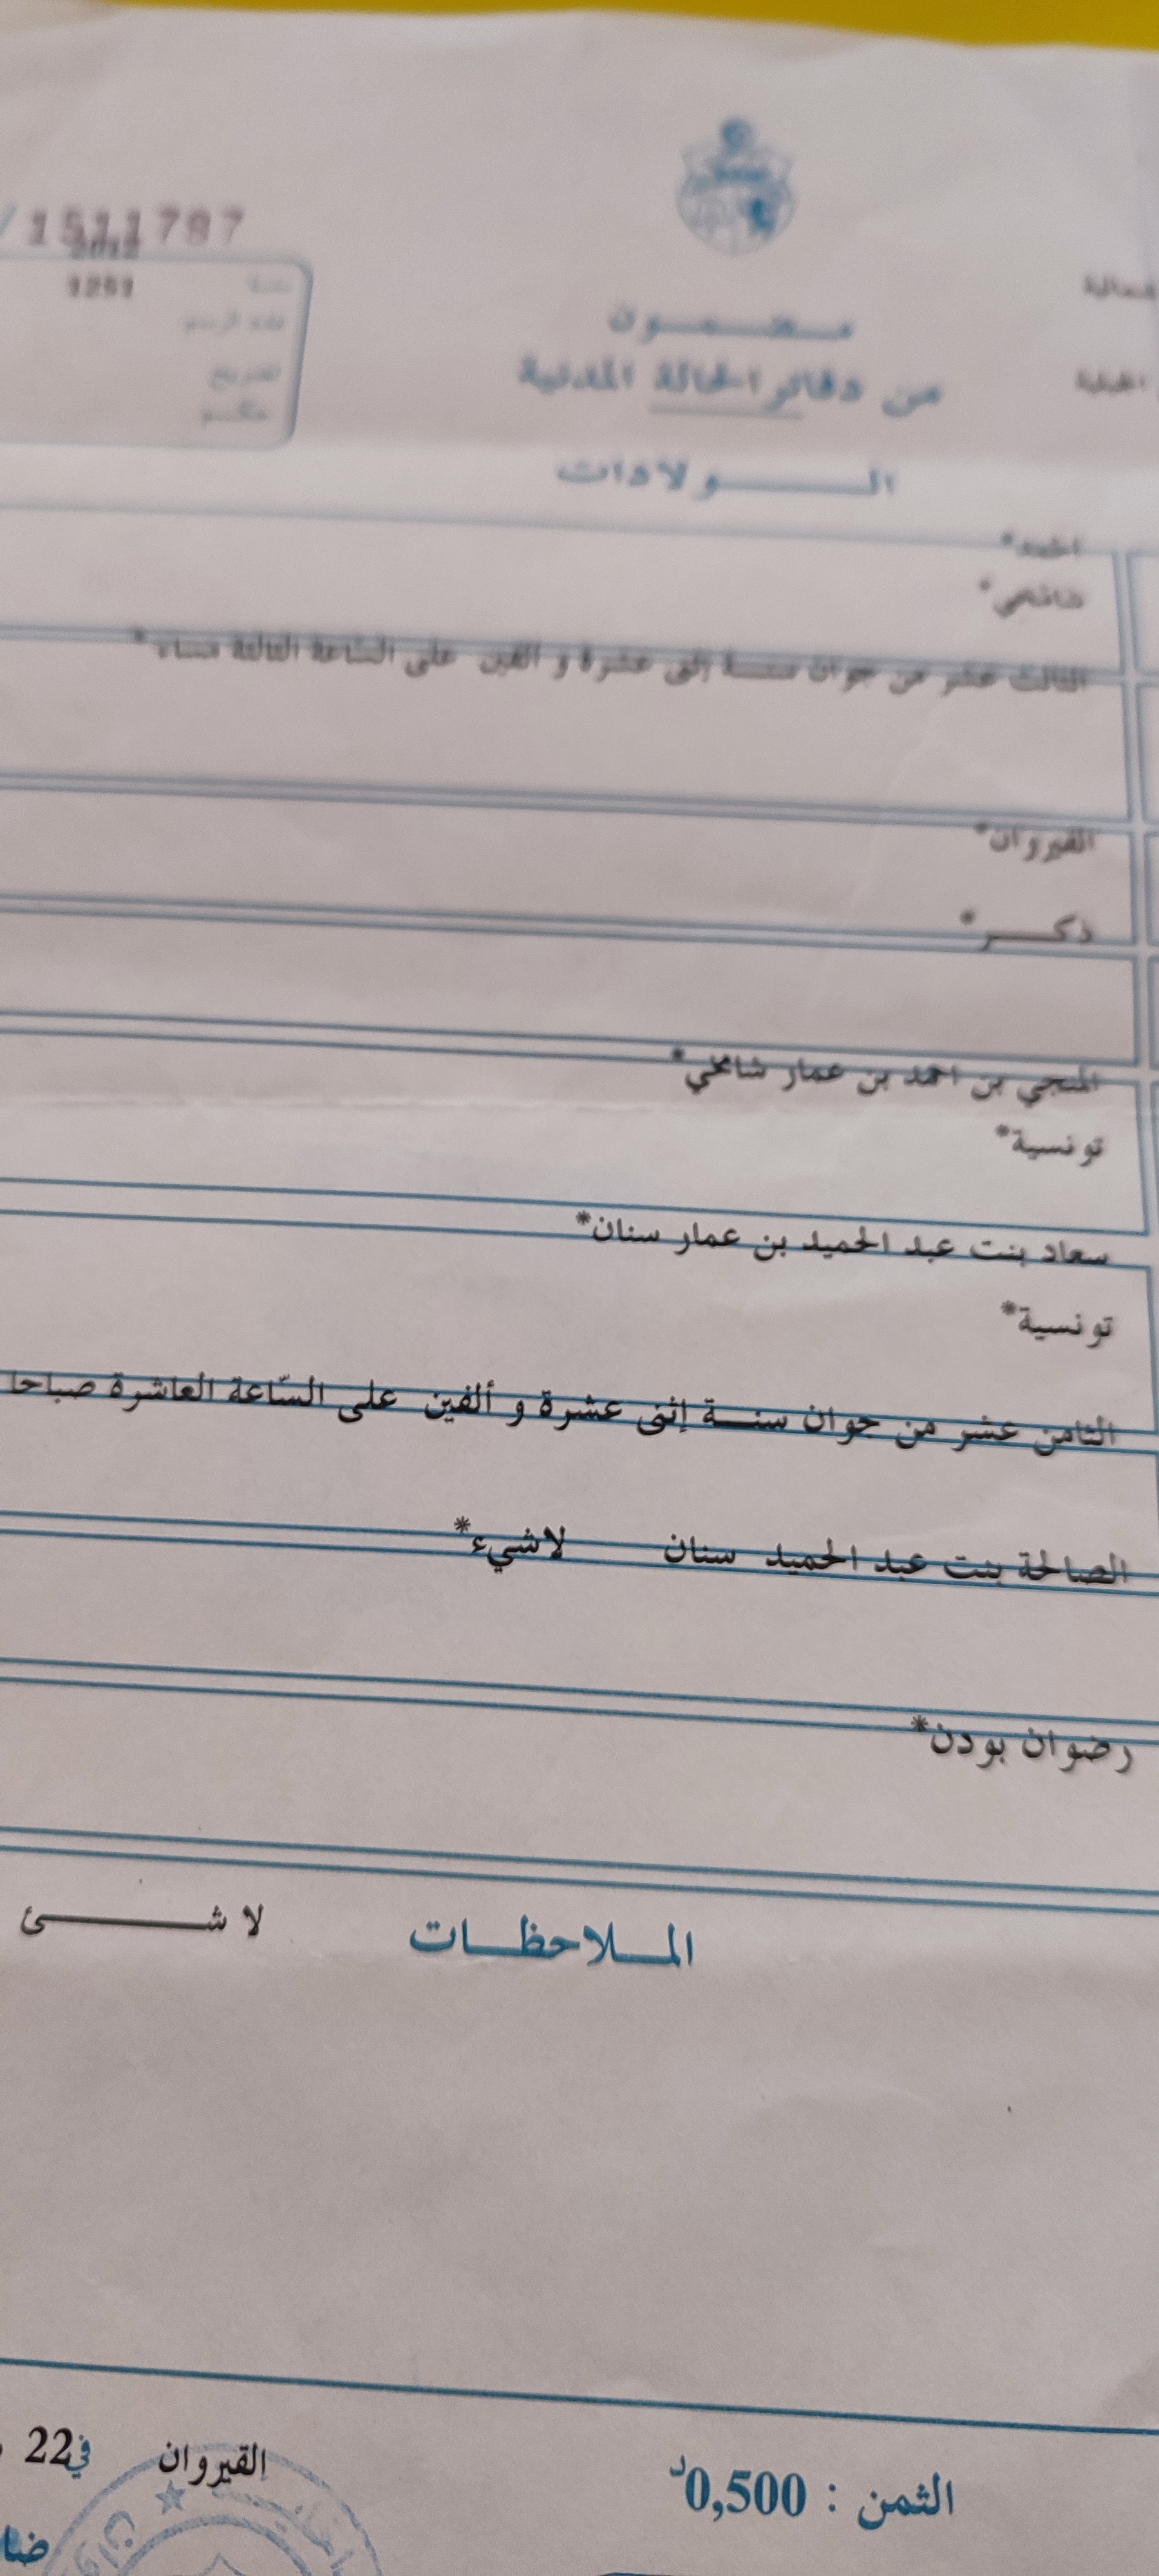 1511787
2012
1251
سنة
عدد الرسم
مضمون
من دفاتر الحالة المدنية
الولادات
احمد*
شامخي*
الثالث عشر من جوان سنة إثنى عشرة و ألفين على السّاعة الثالثة مساء*
القيروان*
ذكر*
المنجي بن احمد بن عمار شامخي*
تونسية*
سعاد بنت عبد الحميد بن عمار سنان*
تونسية*
الثامن عشر من جوان سنة إثنى عشرة و ألفين على السّاعة العاشرة صباحا
الصالحة بنت عبد الحميد سنان لاشيء*
رضوان بودن*
الملاحظات لا شئ
القيروان في 22
الثمن : 0,500د